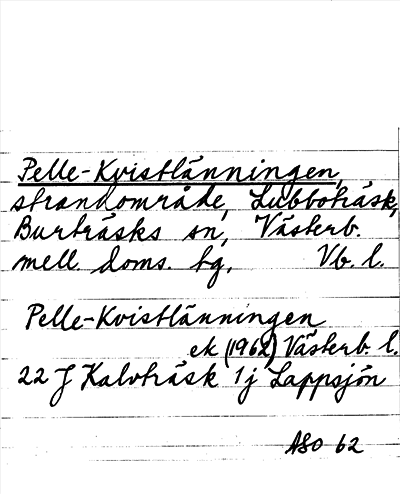 Pelle-Kvistlänningen,
strandområde, Lubboträsk,
Burträsks sn, Västerb.
mell. doms. tg, Vb. l.
Pelle-Kvistlänningen
ek (1962) Västerb. l.
22 J Kalvträsk 1j Lappsjön
ASO 62